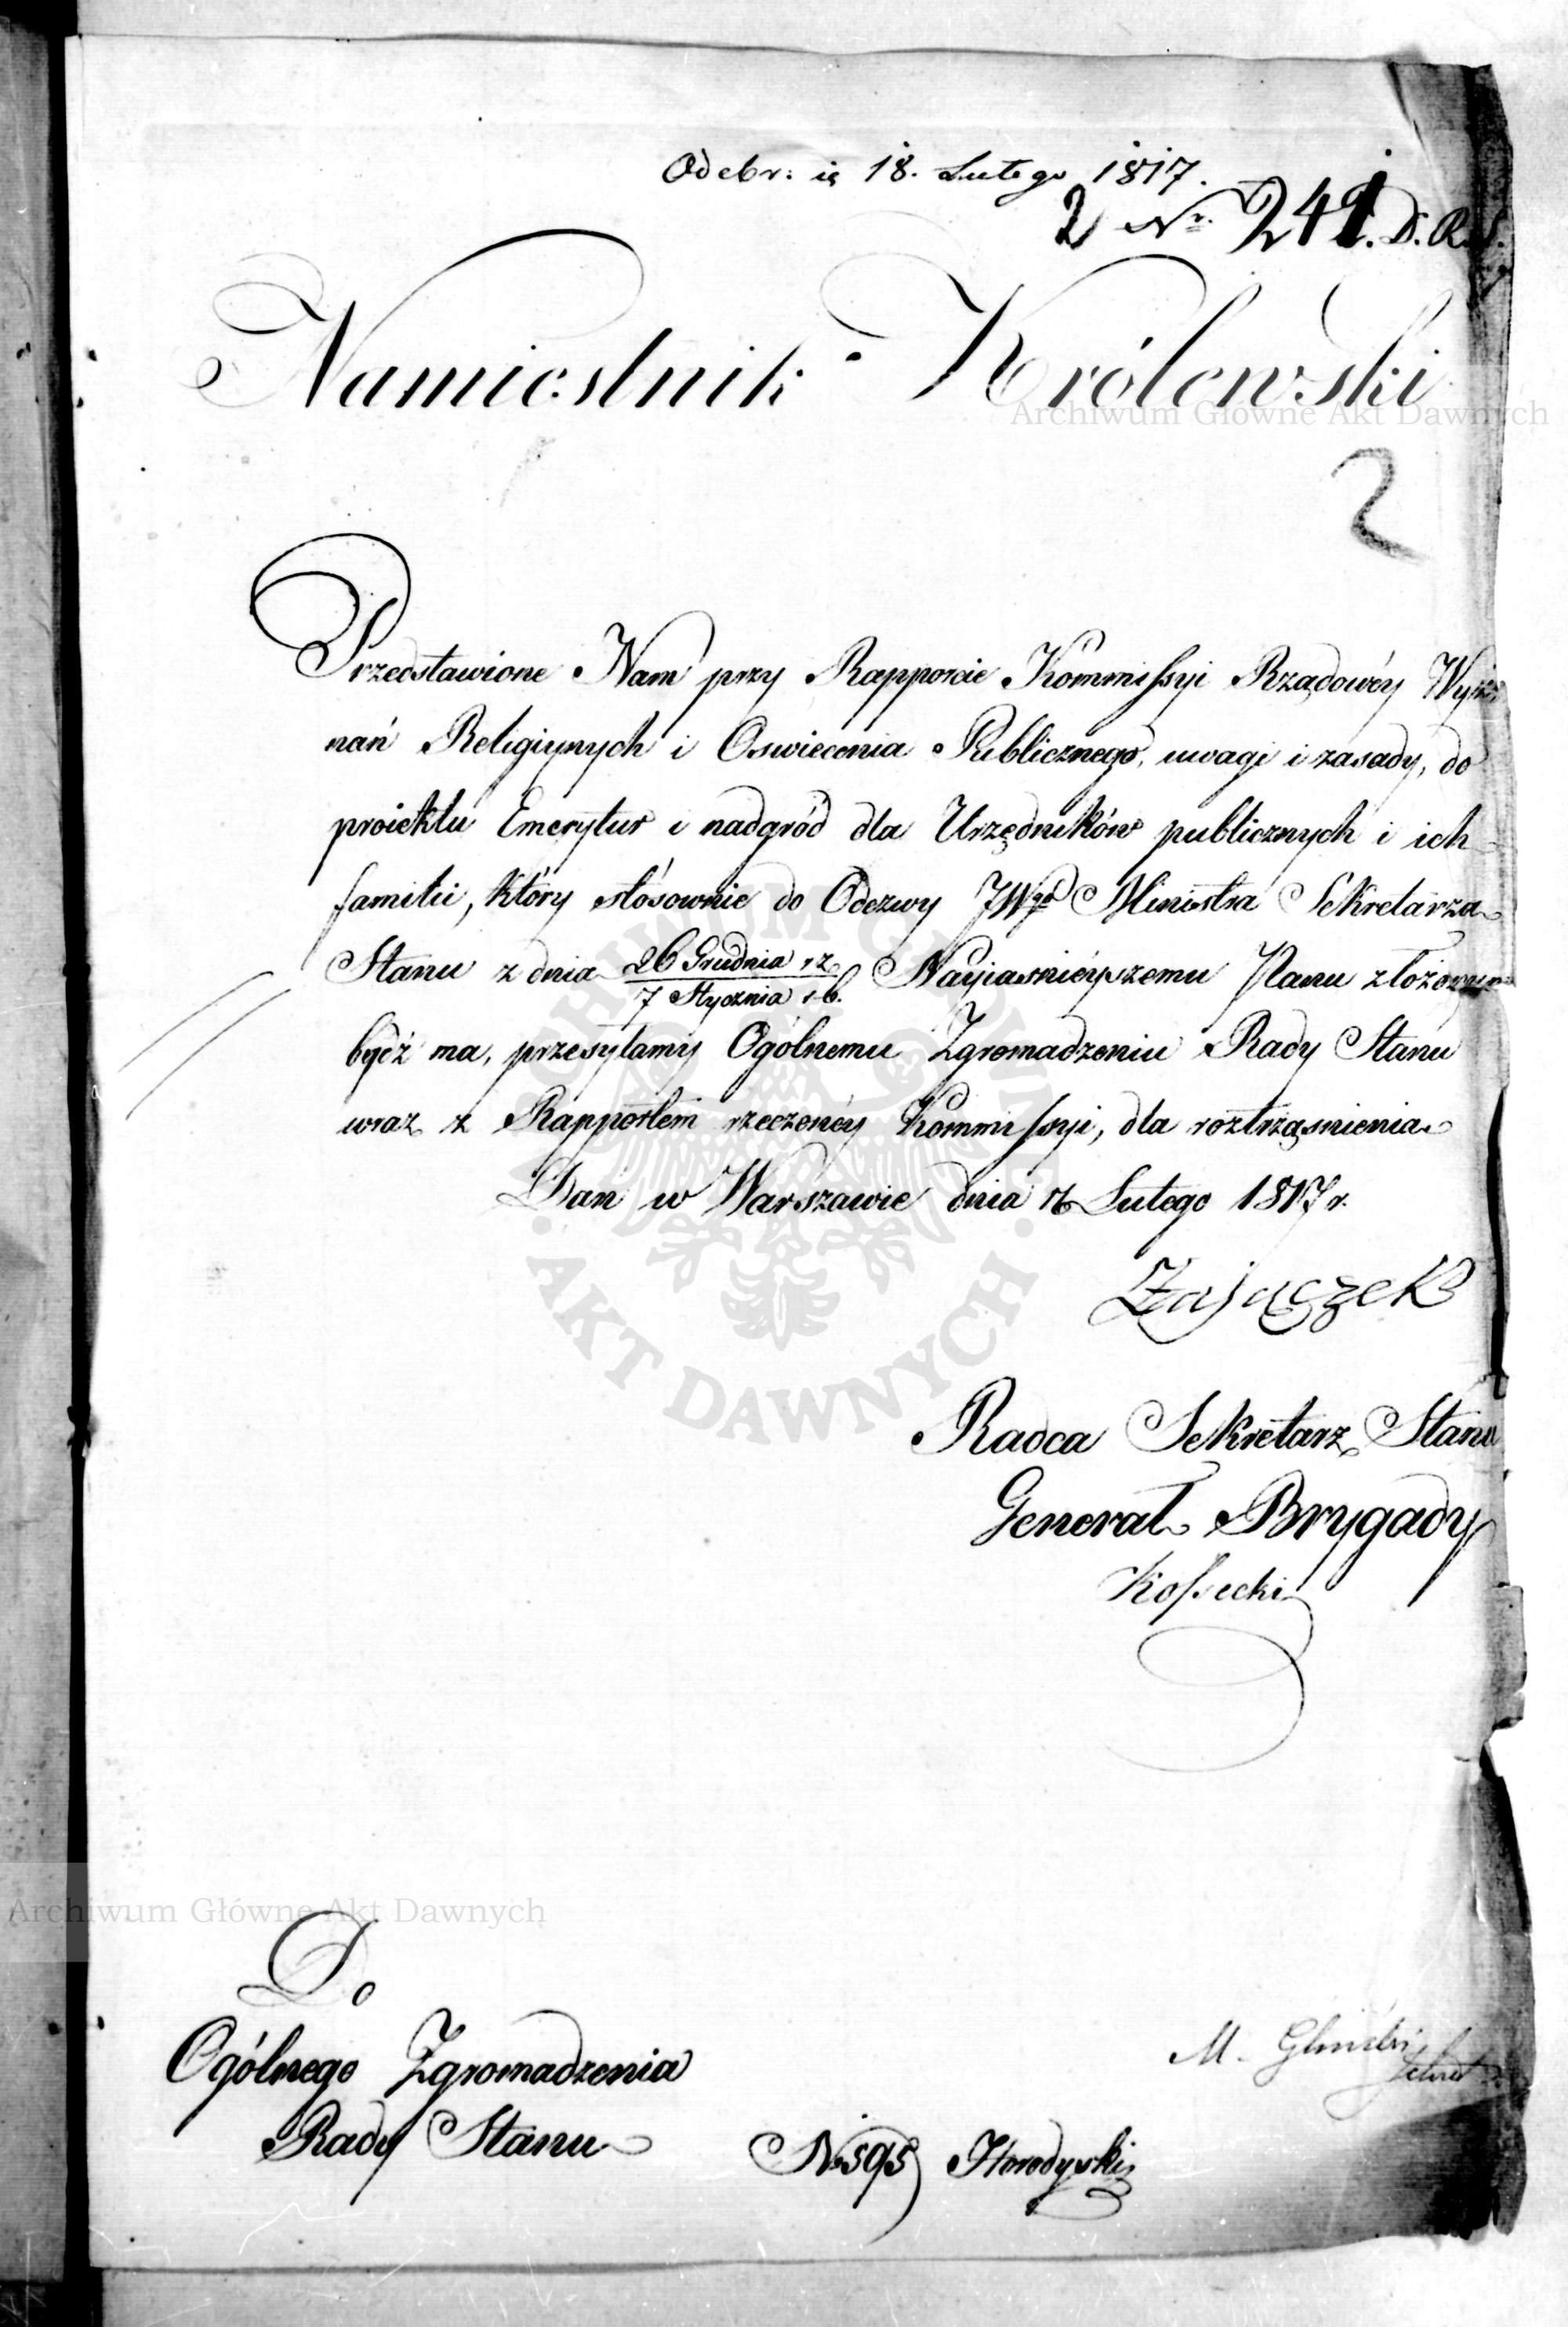 Odebr: 18. Lutego 1817.
2 Nr. 241. D. R. S.
Namiestnik Królewski
Archiwum Główne Akt Dawnych
2
Przedstawione Nam przy Rapporcie Kommissyi Rządowéy Wyz
nań Religiynych i Oswiecenia Publicznego, uwagi i zasady, do
proiektu Emerytur i nadgród dla Urzędników publicznych i ich
familii, który stósownie do Odezwy JWgo Ministra Sekretarza
Stanu z dnia 26 Grudnia r z
7 Stycznia r b. Nayiasnieyszemu Panu złożonym
bydź ma, przesyłamy Ogólnemu Zgromadzeniu Rady Stanu
wraz z Rapportem rzeczonéy Kommissyi, dla roztrząsnienia
Dan w Warszawie dnia Lutego 1817 r.
Zajączek
Radca Sekretarz Stanu
Generał Brygady
Kossecki
ARCHIWUM GŁÓWNE
AKT DAWNYCH
Archiwum Główne Akt Dawnych
Do
Ogólnego Zgromadzenia
Rady Stanu
M. Gliński
N. 595 Horodyski